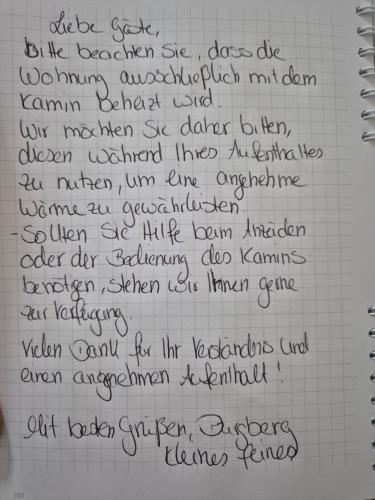 Liebe Gäste,
Bitte beachten Sie, dass die
Wohnung ausschließlich mit dem
Kamin beheizt wird.
Wir möchten Sie daher bitten,
diesen während Ihres Aufenthaltes
zu nutzen, um eine angenehme
Wärme zu gewährleisten
- Sollten Sie Hilfe beim Anzünden
oder der Bedienung des Kamins
benötigen, stehen wir Ihnen gerne
zur Verfügung.
Vielen Dank für Ihr Verständnis und
einen angenehmen Aufenthalt!
Mit besten Grüßen,
kleines feines